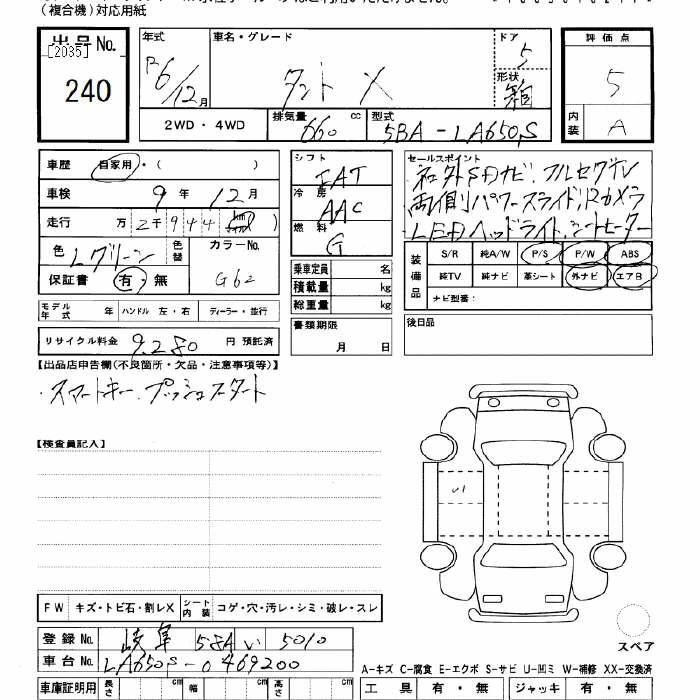 (複合機)対応用紙
出品No.
[2035]
240
年式
R6/12月
車名・グレード
タント X
ドア
5
形状
箱
評価点
5
内装
A
2WD・4WD
排気量
660 cc
型式
5BA-LA650S
車歴 自家用・( )
車検 9年 12月
走行 万 2千944 km
色 Lグリーン
色替
カラーNo.
G62
保証書 有・無
モデル年式 年 ハンドル 左・右 ディーラー・並行
リサイクル料金 9,280 円 預託済
シフト
IAT
冷房
AAC
燃料
G
乗車定員 名
積載量 kg
総重量 kg
書類期限
月 日
セールスポイント
社外SDナビ.フルセグTV
両側パワースライド,Rカメラ
LEDヘッドライト,シートヒーター
装備品
S/R 純A/W P/S P/W ABS
純TV 純ナビ 革シート 外ナビ エアB
ナビ型番:
後日品
【出品店申告欄(不良箇所・欠品・注意事項等)】
・スマートキー.プッシュスタート
【検査員記入】
U1
FW キズ・トビ石・割レX シート内装 コゲ・穴・汚レ・シミ・破レ・スレ
スペア
登録No. 岐阜 58A い 5010
車台No. LA650S-0469200
A-キズ C-腐食 E-エクボ S-サビ U-凹ミ W-補修 XX-交換済
車庫証明用 長さ cm 幅 cm 高さ cm
工具 有・無 ジャッキ 有・無